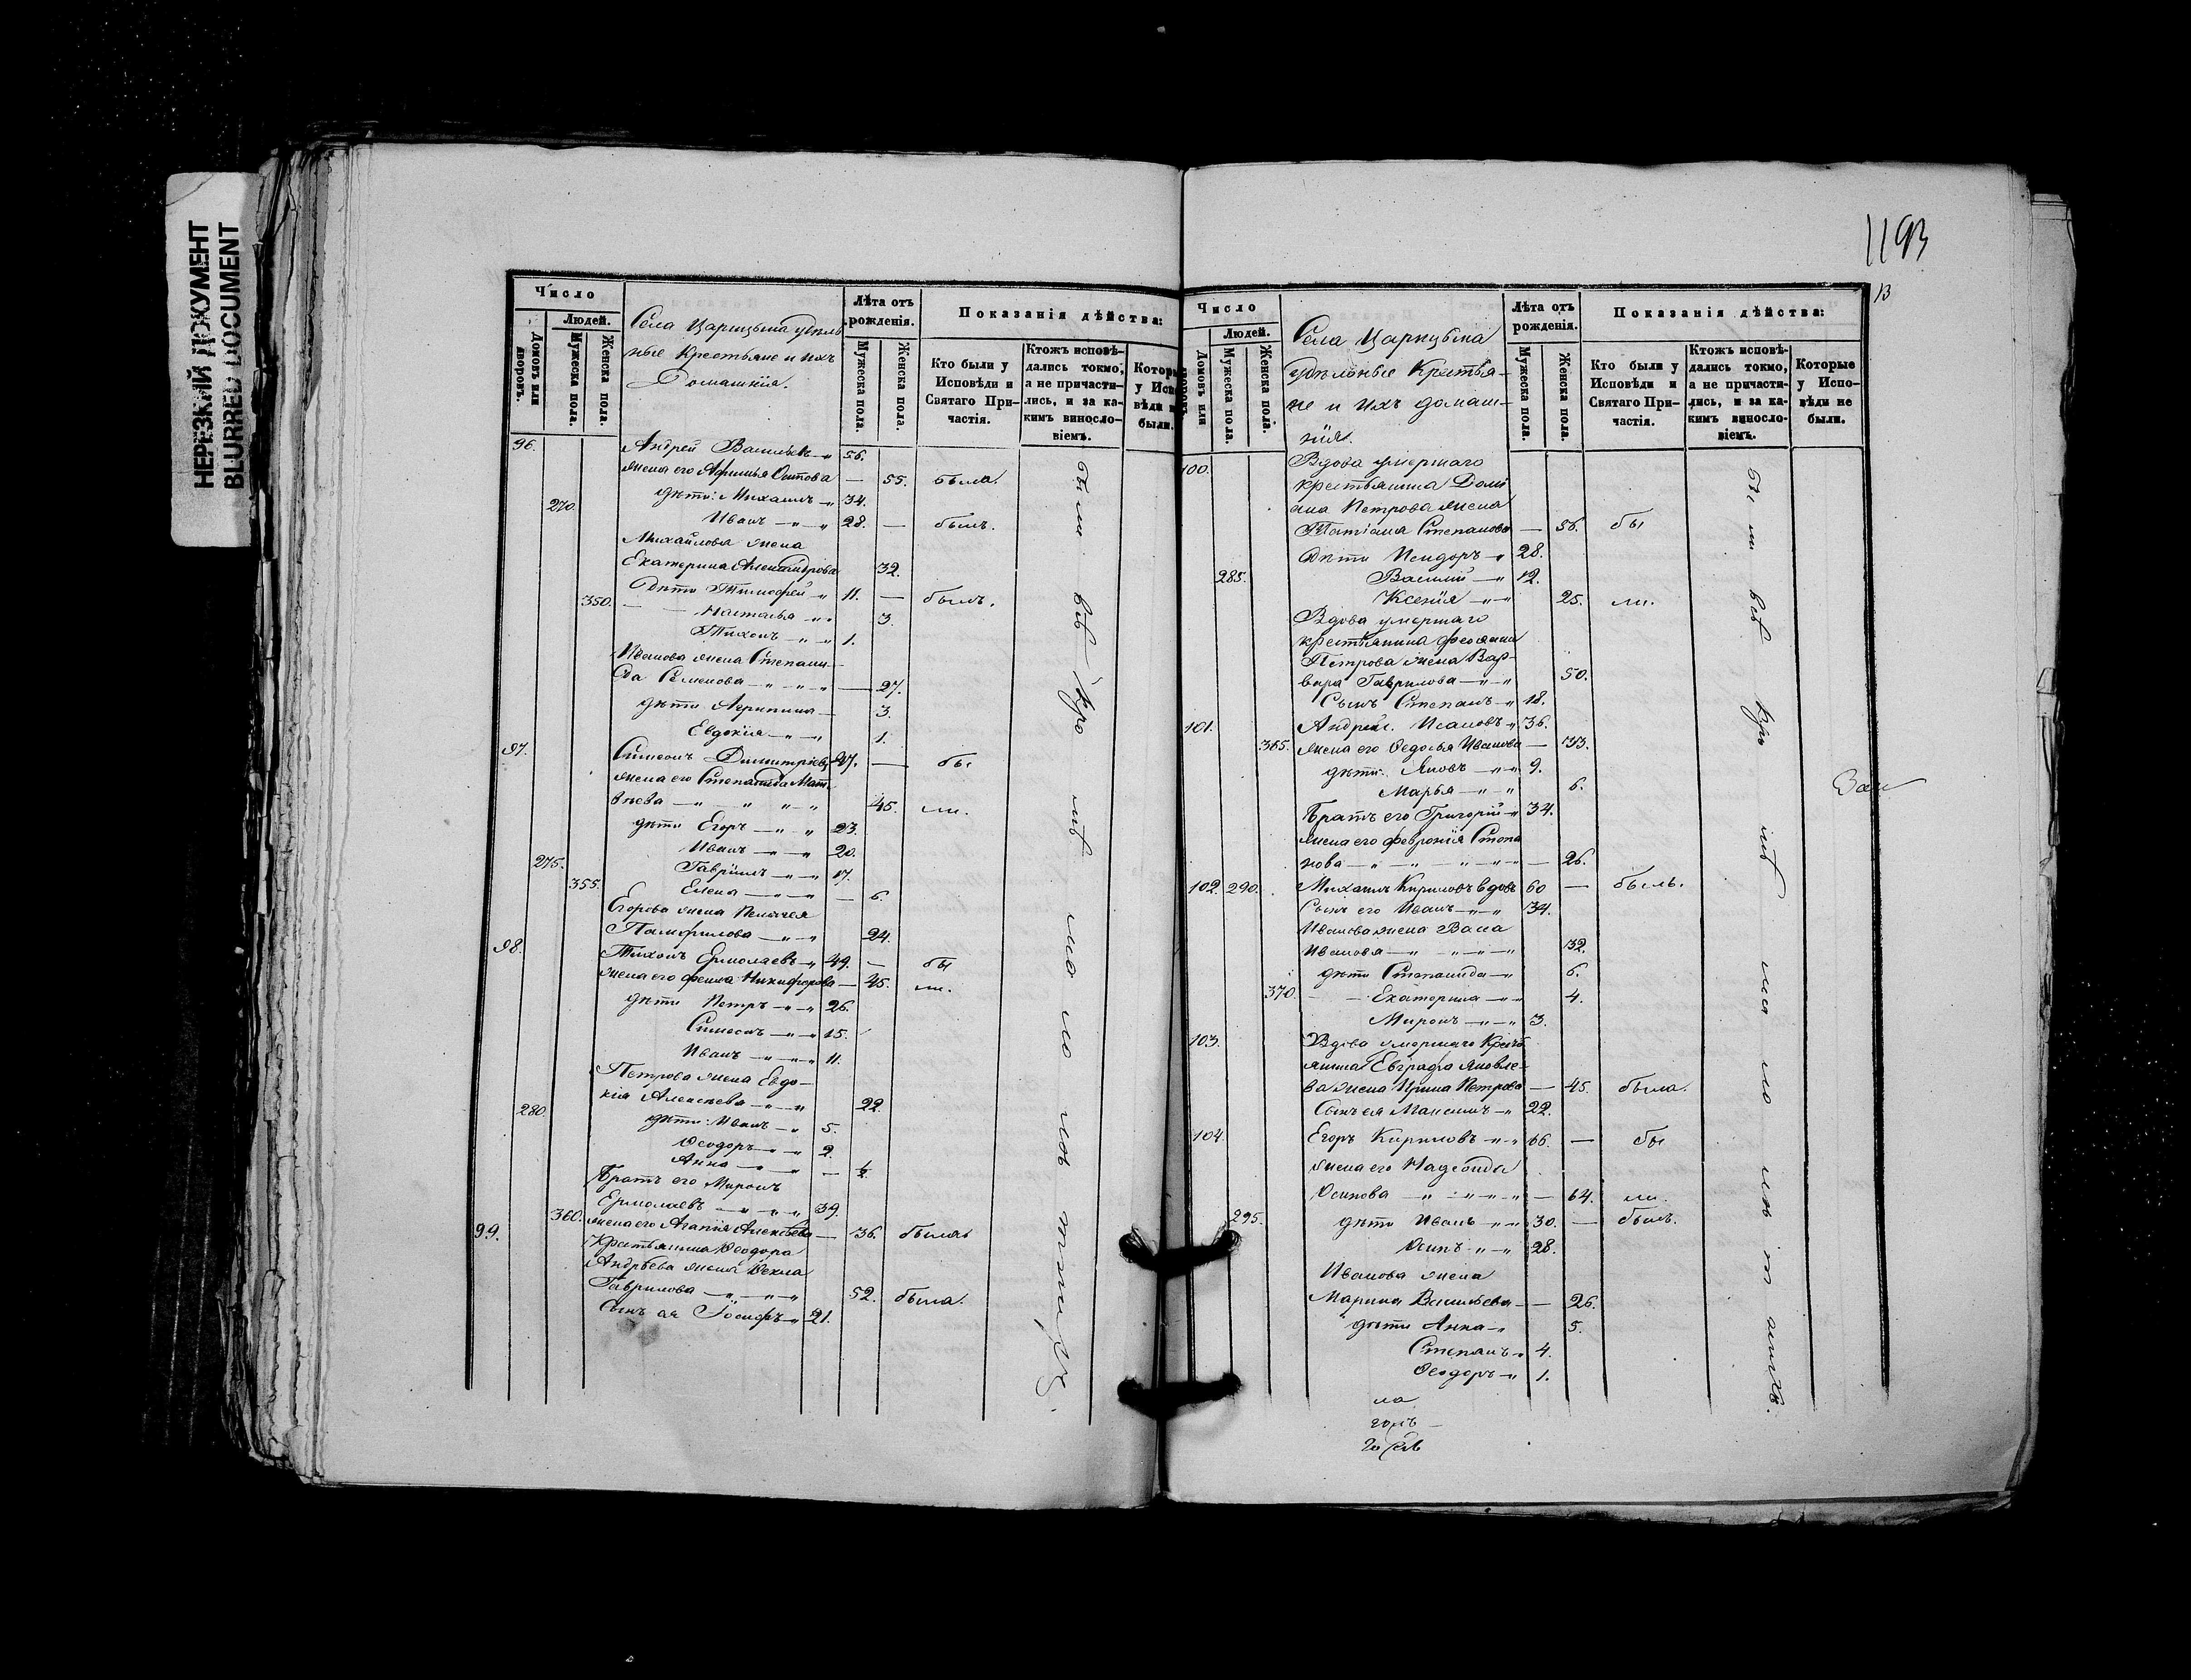 НЕРЕЗКИЙ ДОКУМЕНТ
BLURRED DOCUMENT
1193
13
Число
Людей.
Домовъ или дворовъ.
Мужеска пола.
Женска пола.
Села Царицына удѣль
ные Крестьяне и ихъ
Домашнія.
Лѣта отъ рожденія.
Мужеска пола.
Женска пола.
Показанія дѣйства:
Кто были у Исповѣди и Святаго Причастія.
Ктожъ исповѣдались токмо, а не причастились, и за какимъ винословіемъ.
Которы у Исп вѣди н были.
96. Андрей Васильевъ 56.
жена его Афимья Осипова — 55. была.
270. дѣти: Михаилъ 34.
Иванъ 28. — былъ.
Михайлова жена
Екатерина Александрова 32.
Дѣти Тимофей 11. — былъ.
350. Наталья 3.
Тихонъ 1.
Иванова жена Степани-
да Семенова — 27.
дѣти Агрипина 3.
Евдокія 1.
97. Симеонъ Димитріевъ 47. — бы
жена его Степанида Мат-
вѣева 45. ли.
дѣти Егоръ 23.
Иванъ 20.
275. Гавріилъ 17.
355. Елена — 6.
Егорова жена Пелагея
Памфилова 24.
98. Тихонъ Ермолаевъ 49. — бы
жена его Фекла Никифорова — 45. ли.
дѣти Петръ 26.
Симеонъ 15.
Иванъ 11.
Петрова жена Евдо-
кія Алексѣева 22.
280. дѣти: Иванъ 5.
Ѳеодоръ 2.
Анна — ½
Братъ его Миронъ
Ермолаевъ 39.
360. жена его Агапія Алексѣева — 36. была
99. Крестьянина Ѳеодора
Андрѣева жена Ѳекла
Гаврилова 52. была.
Сынъ ея Іосифъ 21.
Число
Людей.
Домовъ или дворовъ.
Мужеска пола.
Женска пола.
Села Царицына
удѣльные Крестья-
не и ихъ домаш-
нія.
Лѣта отъ рожденія.
Мужеска пола.
Женска пола.
Показанія дѣйства:
Кто были у Исповѣди и Святаго Причастія.
Ктожъ исповѣдались токмо, а не причастились, и за какимъ винословіемъ.
Которые у Исповѣди не были.
100. Вдова умершаго
крестьянина Доми
ана Петрова жена
Татіана Степанова — 56. бы
Дѣти Исидоръ 28.
285. Василій 12.
Ксенія 25. ли.
Вдова умершаго
крестьянина
Петрова жена Вар-
вара Гаврилова 50.
Сынъ Степанъ 18.
101. Андрей Исаковъ 36.
365. жена его Ѳедосья Иванова — 33.
дѣти: Яковъ 9.
Марья 6.
Братъ его Григорій 34.
жена его Феоронія Степа
нова — 26.
102. 290. Михаилъ Кириловъ вдовъ 60 — былъ.
Сынъ его Иванъ 34.
Иванова жена
Иванова 32.
дѣти Степанида 6.
370. Екатерина 4.
Миронъ 3.
103. Вдова умершаго Кресть
янина Евграфа Яковле-
ва жена Ирина Петрова — 45. была.
Сынъ ея Максимъ 22.
104. Егоръ Кириловъ 66. — бы
жена его
Осипова — 64. ли.
295. дѣти Иванъ 30. — былъ.
Осипъ 28.
Иванова жена
Марина Васильева — 26.
дѣти Анна 5.
Степанъ 4.
Ѳеодоръ 1.